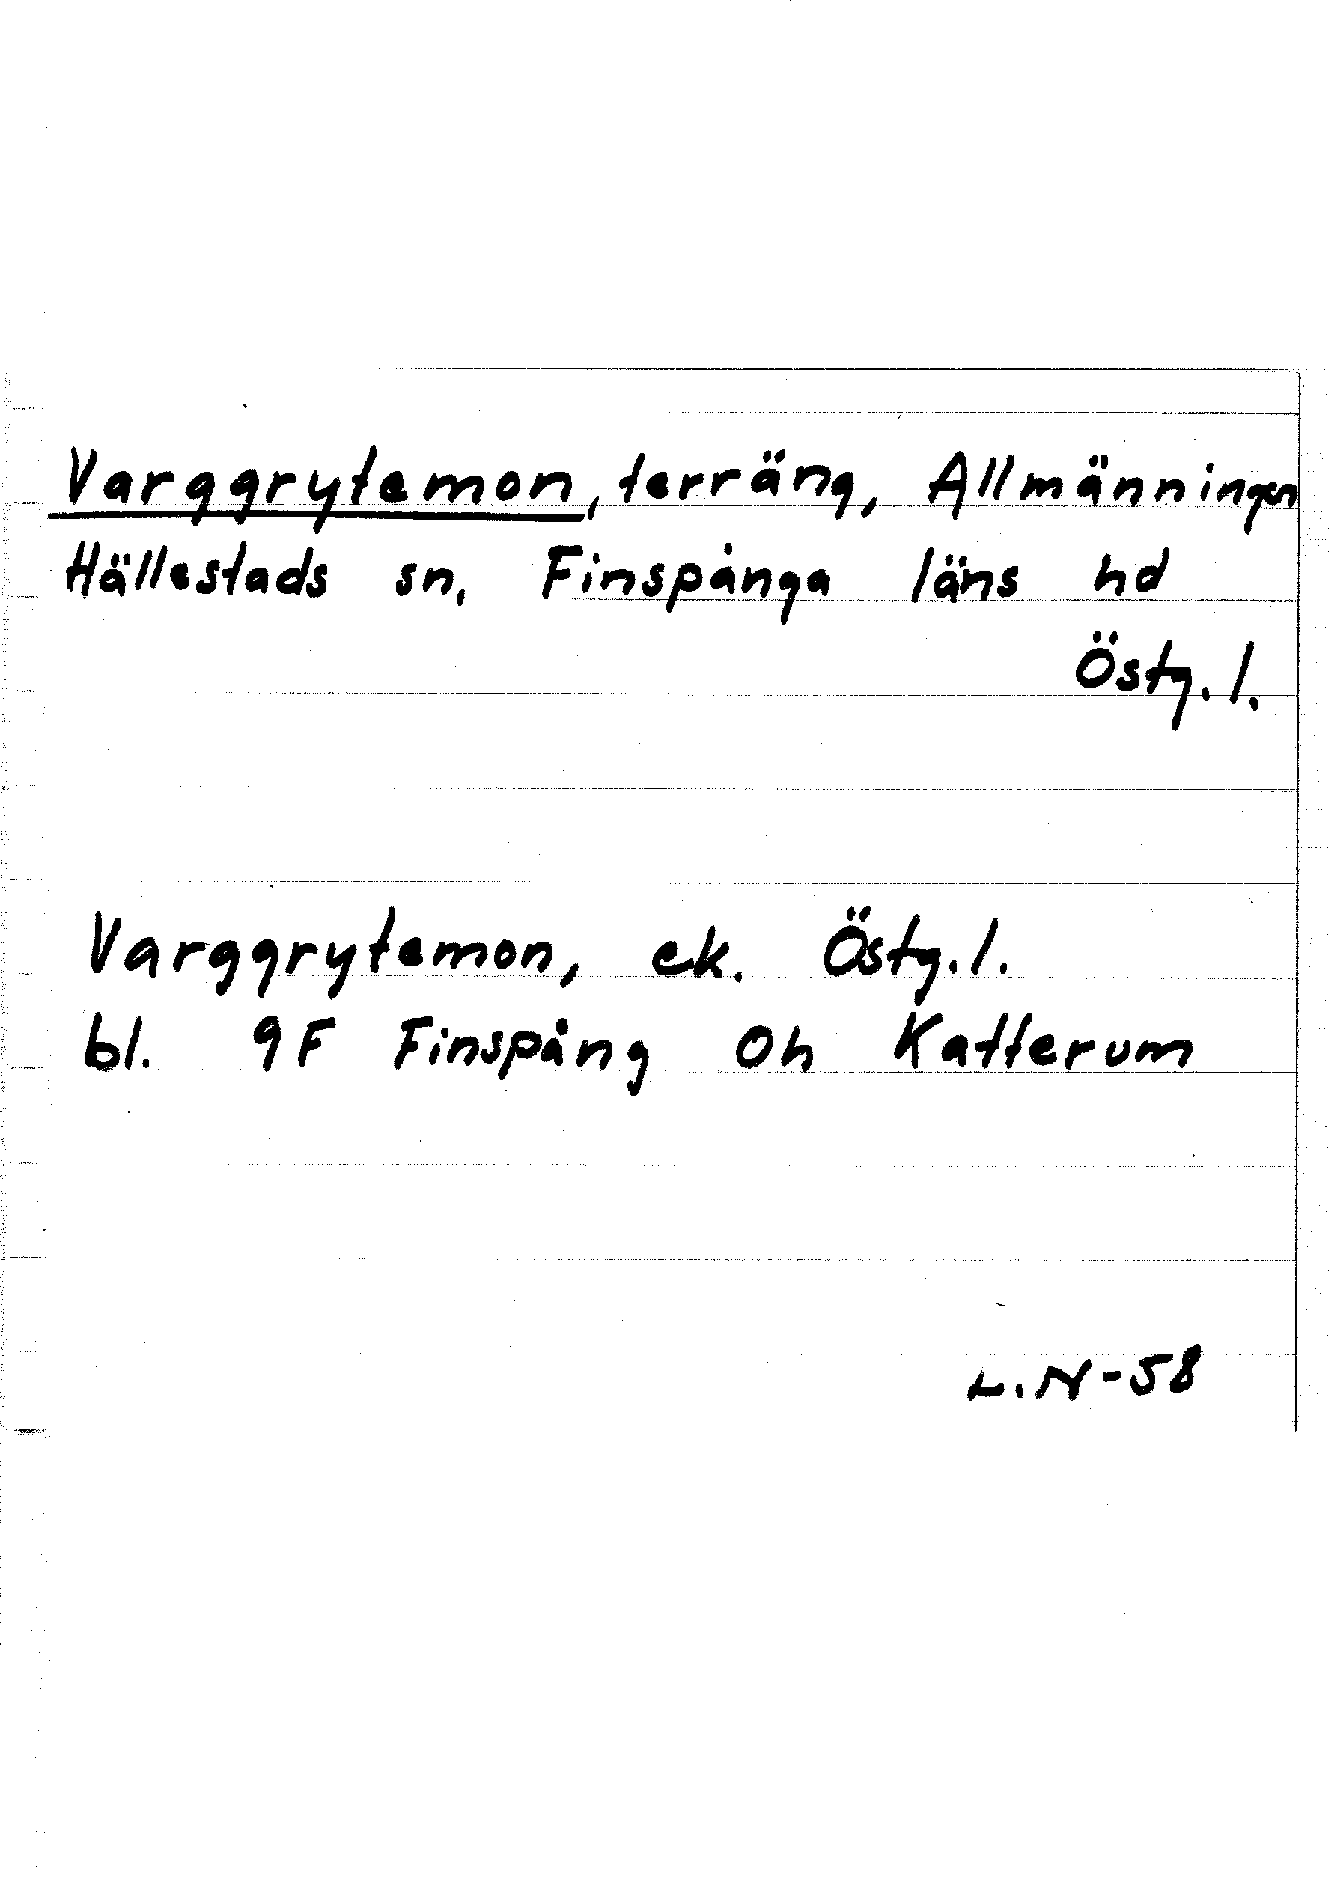 Varggrytemon, terräng, Allmänningen
Hällestads sn, Finspånga läns hd
Östg. l.
Varggrytemon, ek. Östg. l.
bl. 9F Finspång 0h Katterum
L.N-58